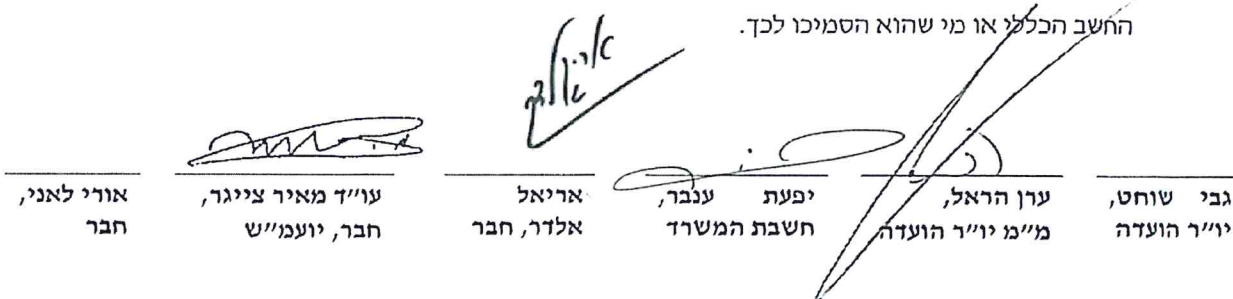 החשב הכללי או מי שהוא הסמיכו לכך.
גבי שוחט,
יו״ר הועדה
ערן הראל,
מ״מ יו״ר הועדה
יפעת ענבר,
חשבת המשרד
אריאל
אלדר, חבר
עו״ד מאיר צייגר,
חבר, יועמ״ש
אורי לאני,
חבר